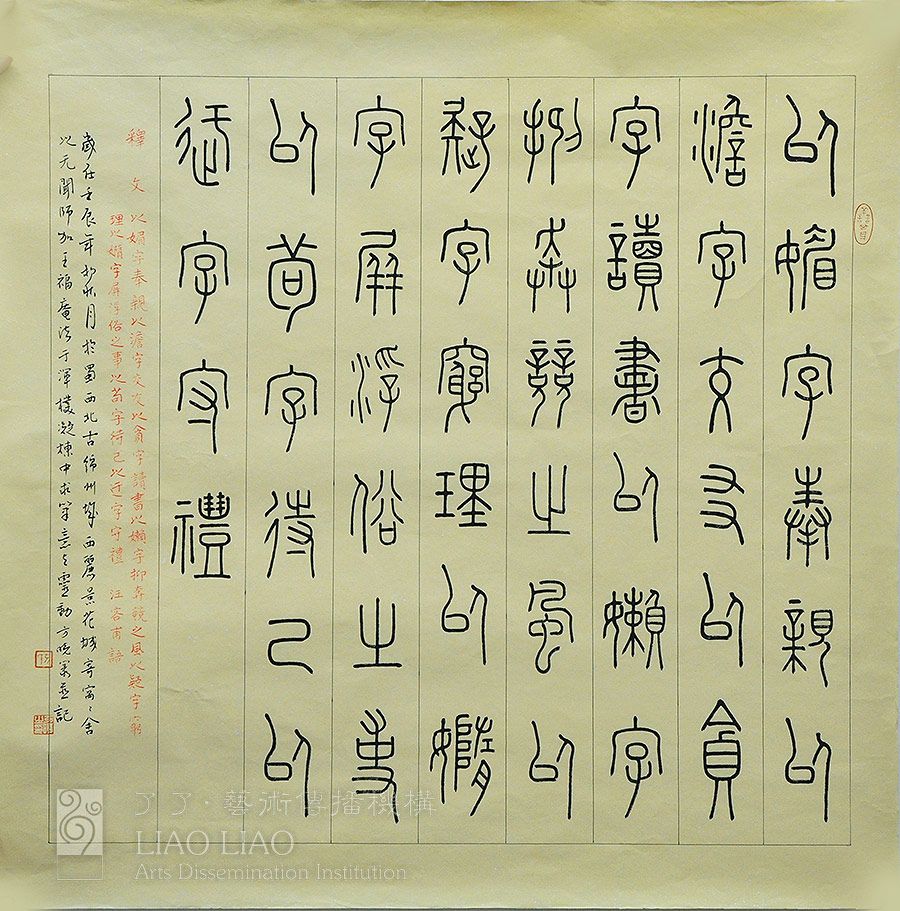 以媚字奉親以
澹字交友以貪
字讀書以嬾字
抑奔競之風以
疑字窮理以媠
字屏浮俗之事
以苟字待己以
迂字守禮
釋文 以媚字奉親以澹字交友以貪字讀書以嬾字抑奔競之風以疑字窮
理以媠字屏浮俗之事以苟字待己以迂字守禮 汪容甫語
歲在壬辰年初秋月於蜀西北古綿州城西麗景花城寄寓之舍
以元聞師加王福庵法于渾樸凝中求筆意之靈動方並記
了了·藝術傳播機構
LIAO LIAO
Arts Dissemination Institution